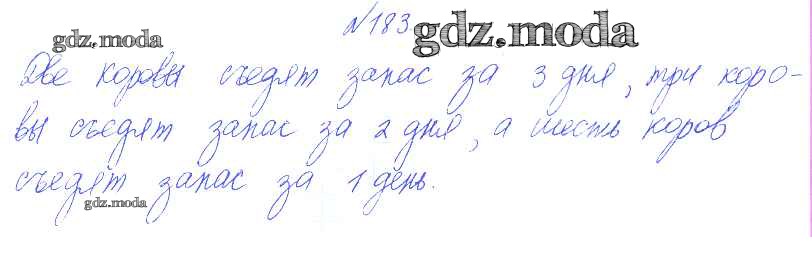 №183
gdz.moda gdz.moda
Две коровы съедят запас за 3 дня, три коро-
вы съедят запас за 2 дня, а шесть коров
съедят запас за 1 день.
gdz.moda